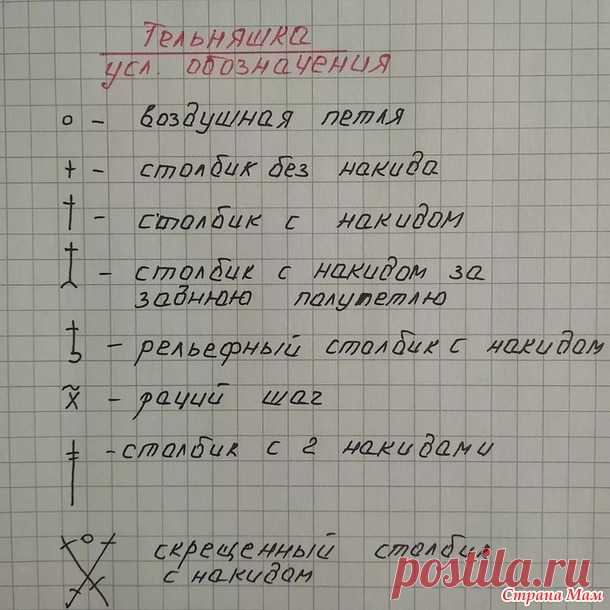 Тельняшка
усл. обозначения
о – воздушная петля
+ – столбик без накида
† – столбик с накидом
– столбик с накидом за
заднюю полупетлю
– рельефный столбик с накидом
x̃ – рачий шаг
– столбик с 2 накидами
скрещенный столбик
с накидом
postila.ru
Страна Мам